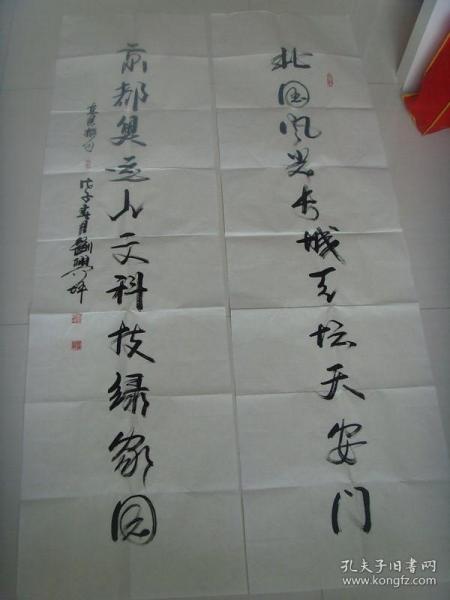 北国风光长城天坛天安门
京都奥运人文科技绿家园
戊子春月
孔夫子旧书网
www.kongfz.com